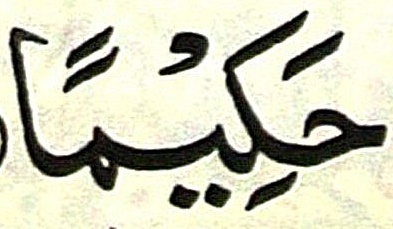 حَكِيْمًا